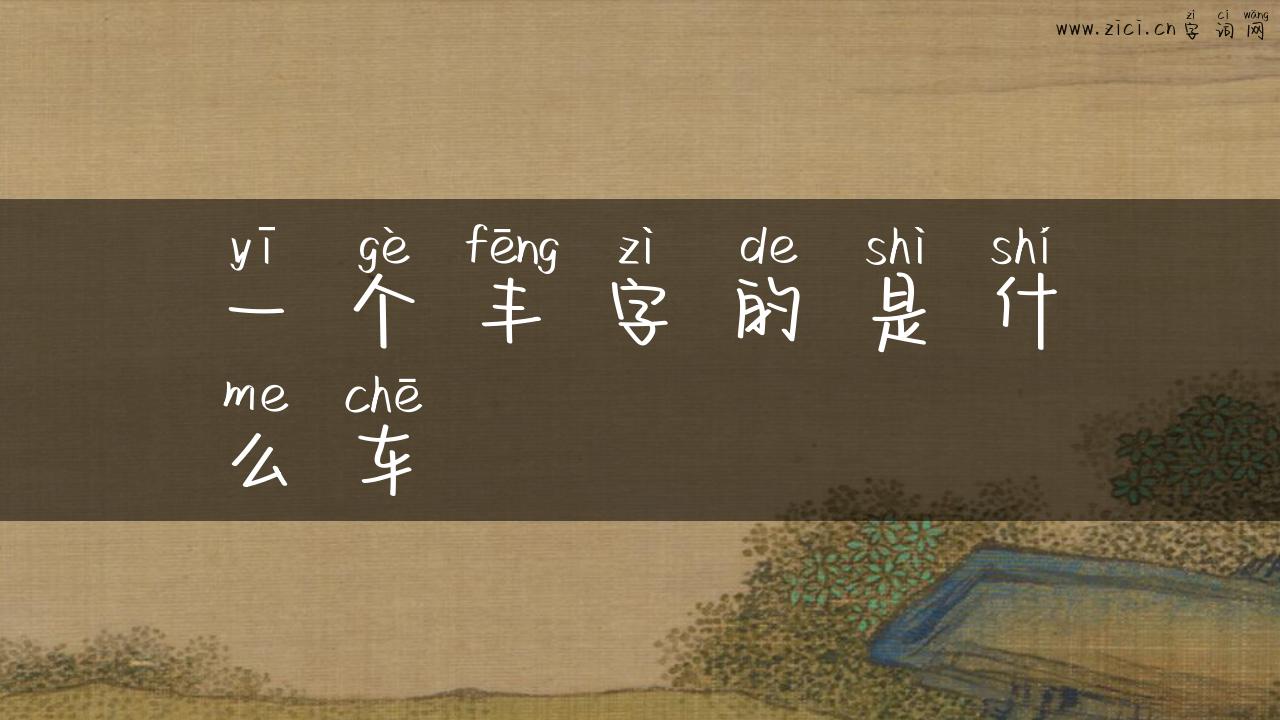 zì cí wǎng
www.zici.cn 字 词 网
yī gè fēng zì de shì shí
一 个 丰 字 的 是 什
me chē
么 车